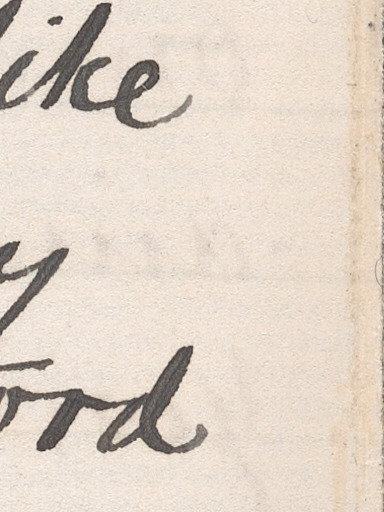 like
y
ord